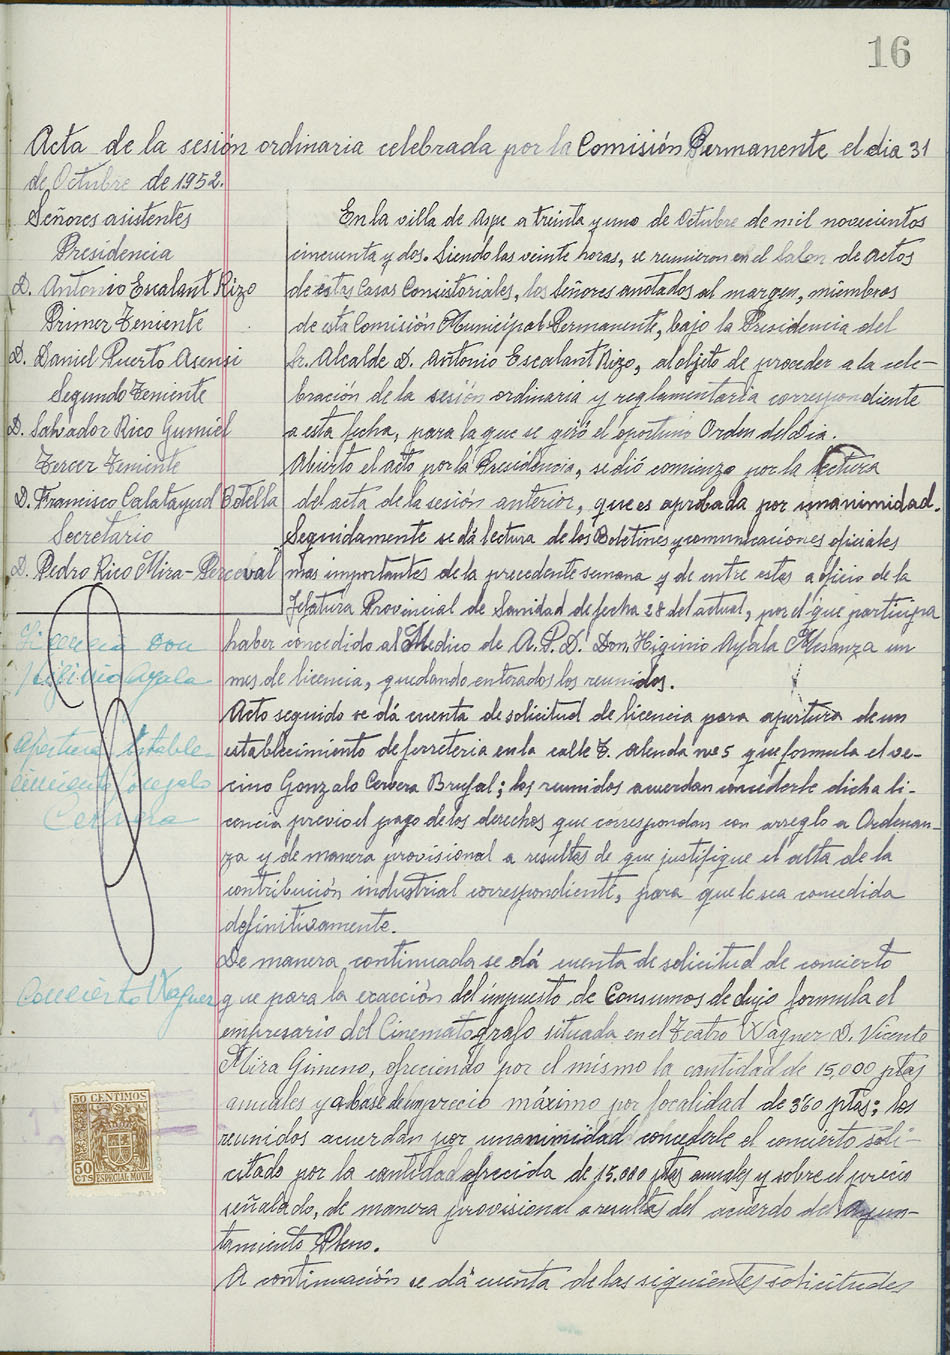 16
Acta de la sesión ordinaria celebrada por la Comisión Permanente el dia 31
de Octubre de 1952.
Señores asistentes
Presidencia
D. Antonio Escalant Rizo
Primer Teniente
D. Daniel Puerto Asensi
Segundo Teniente
D. Salvador Rico Gumiel
Tercer Teniente
D. Francisco Calatayud Botella
Secretario
D. Pedro Rico Mira-Perceval
En la villa de Aspe a treinta y uno de Octubre de mil novecientos
cincuenta y dos. Siendo las veinte horas, se reunieron en el Salon de actos
de estas Casas Consistoriales, los Señores anotados al margen, miembros
de esta Comisión Municipal Permanente, bajo la Presidencia del
Sr. Alcalde D. Antonio Escalant Rizo, al objeto de proceder a la cele-
bración de la sesión ordinaria y reglamentaria correspondiente
a esta fecha, para la que se giró el oportuno Orden del Dia.
Abierto el acto por la Presidencia, se dió comienzo por la lectura
del acta de la sesión anterior, que es aprobada por unanimidad.
Seguidamente se dá lectura de los Boletines y comunicaciones oficiales
mas importantes de la precedente semana y de entre estas a oficio de la
Jefatura Provincial de Sanidad de fecha 28 del actual, por el que participa
haber concedido al Medico de A.P.D. Don Higinio Ayala Mesanza un
mes de licencia, quedando enterados los reunidos.
Licencia Don
Higinio Ayala
Acto seguido se dá cuenta de solicitud de licencia para apertura de un
establecimiento de ferreteria en la calle T. Atenda nº 5 que formula el ve-
cino Gonzalo Cervera Brufal; los reunidos acuerdan concederle dicha li-
cencia previo el pago de los derechos que correspondan con arreglo a Ordenan-
za y de manera provisional a resultas de que justifique el alta de la
contribución industrial correspondiente, para que le sea concedida
definitivamente.
Apertura estable-
cimiento Gonzalo
Cervera
De manera continuada se dá cuenta de solicitud de concierto
que para la exacción del impuesto de Consumos de lujo formula el
empresario del Cinematografo situada en el Teatro Wagner D. Vicente
Mira Gimeno, ofreciendo por el mismo la cantidad de 15,000 ptas
anuales y a base de un precio máximo por localidad de 3'60 ptas; los
reunidos acuerdan por unanimidad concederle el concierto soli-
citado por la cantidad ofrecida de 15.000 ptas anuales y sobre el precio
señalado, de manera provisional a resultas del acuerdo del Ayun-
tamiento Pleno.
Concierto Wagner
A continuación se dá cuenta de las siguientes solicitudes
50 CENTIMOS
50
CTS
ESPECIAL MOVIL